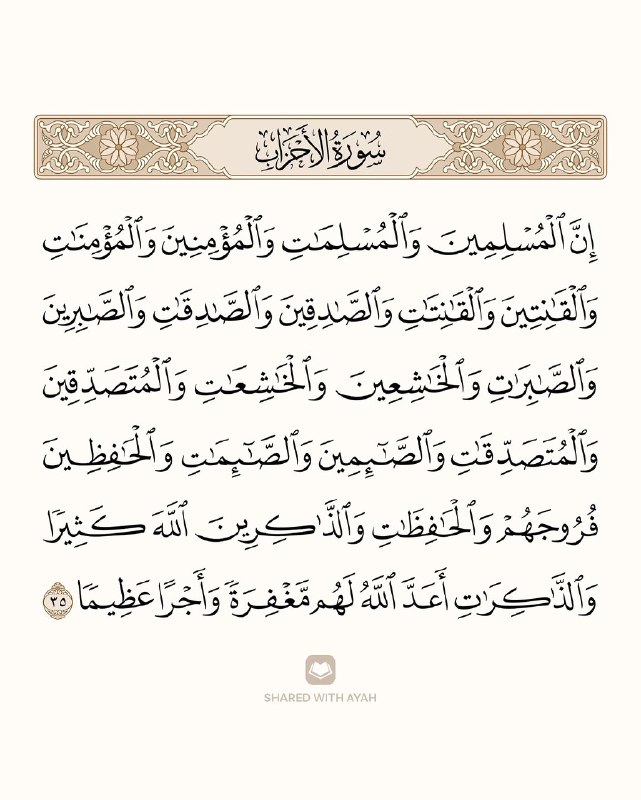 سُورَةُ الأَحْزَابِ
إِنَّ ٱلْمُسْلِمِينَ وَٱلْمُسْلِمَٰتِ وَٱلْمُؤْمِنِينَ وَٱلْمُؤْمِنَٰتِ
وَٱلْقَٰنِتِينَ وَٱلْقَٰنِتَٰتِ وَٱلصَّٰدِقِينَ وَٱلصَّٰدِقَٰتِ وَٱلصَّٰبِرِينَ
وَٱلصَّٰبِرَٰتِ وَٱلْخَٰشِعِينَ وَٱلْخَٰشِعَٰتِ وَٱلْمُتَصَدِّقِينَ
وَٱلْمُتَصَدِّقَٰتِ وَٱلصَّٰٓئِمِينَ وَٱلصَّٰٓئِمَٰتِ وَٱلْحَٰفِظِينَ
فُرُوجَهُمْ وَٱلْحَٰفِظَٰتِ وَٱلذَّٰكِرِينَ ٱللَّهَ كَثِيرًا
وَٱلذَّٰكِرَٰتِ أَعَدَّ ٱللَّهُ لَهُم مَّغْفِرَةً وَأَجْرًا عَظِيمًا ٣٥
SHARED WITH AYAH